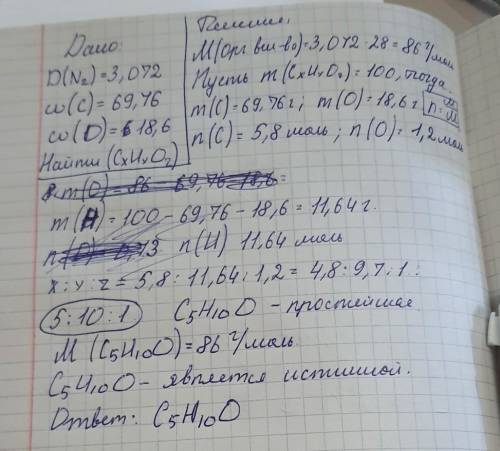 Дано:
D(N₂)=3,072
ω(C)=69,76
ω(O)=18,6
Найти (CxHyOz)
Решение:
M(орг вещ-во)=3,072·28=86 г/моль
Пусть m(CxHyOz)=100, тогда
m(C)=69,76 г; m(O)=18,6 г n=m/M
n(C)=5,8 моль; n(O)=1,2 моль
m(O)=86-69,76-18,6=
m(H)=100-69,76-18,6=11,64 г.
n(H) 11,64 моль
x:y:z=5,8:11,64:1,2=4,8:9,7:1:
5:10:1 C₅H₁₀O - простейшая
M(C₅H₁₀O)=86 г/моль
C₅H₁₀O - является истиной.
Ответ: C₅H₁₀O